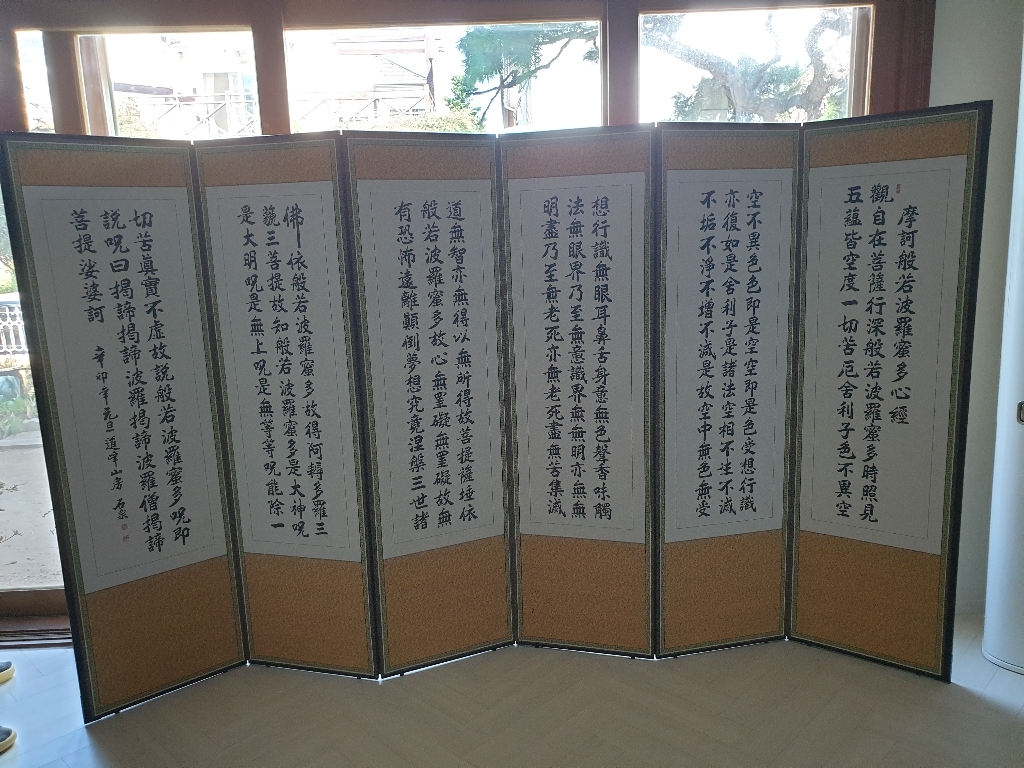 摩訶般若波羅蜜多心經
觀自在菩薩行深般若波羅蜜多時照見
五蘊皆空度一切苦厄舍利子色不異空
空不異色色即是空空即是色受想行識
亦復如是舍利子是諸法空相不生不滅
不垢不淨不增不減是故空中無色無受
想行識無眼耳鼻舌身意無色聲香味觸
法無眼界乃至無意識界無無明亦無無
明盡乃至無老死亦無老死盡無苦集滅
道無智亦無得以無所得故菩提薩埵依
般若波羅蜜多故心無罣礙無罣礙故無
有恐怖遠離顛倒夢想究竟涅槃三世諸
佛依般若波羅蜜多故得阿耨多羅三
藐三菩提故知般若波羅蜜多是大神呪
是大明呪是無上呪是無等等呪能除一
切苦眞實不虛故説般若波羅蜜多呪即
説呪曰揭諦揭諦波羅揭諦波羅僧揭諦
菩提娑婆訶
辛卯 元旦